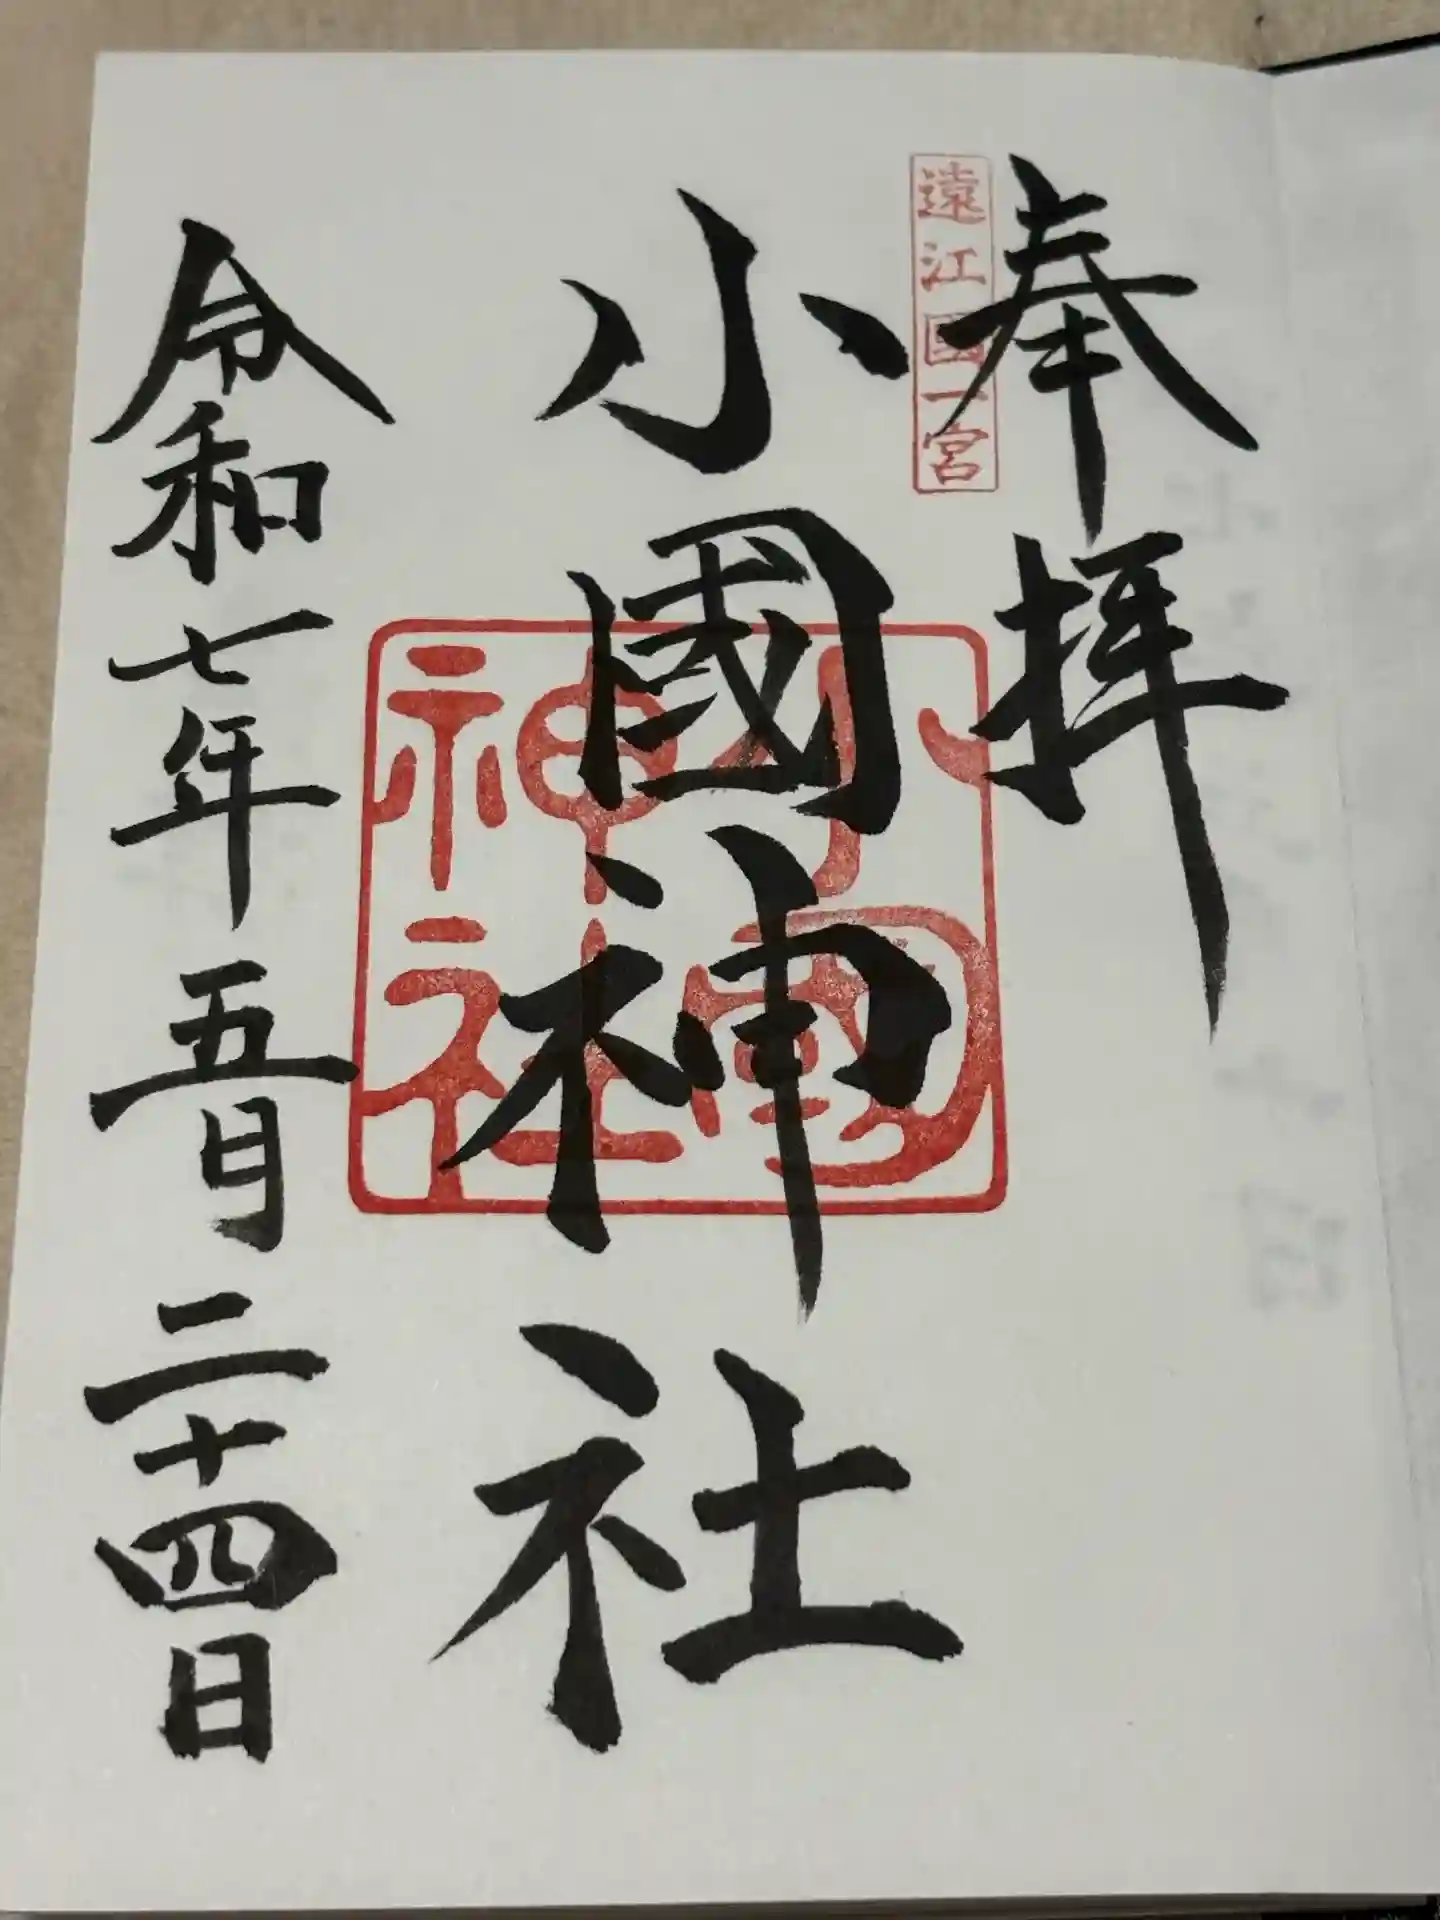 奉拝
遠江國一宮
小國神社
小國
神社
令和七年五月二十四日